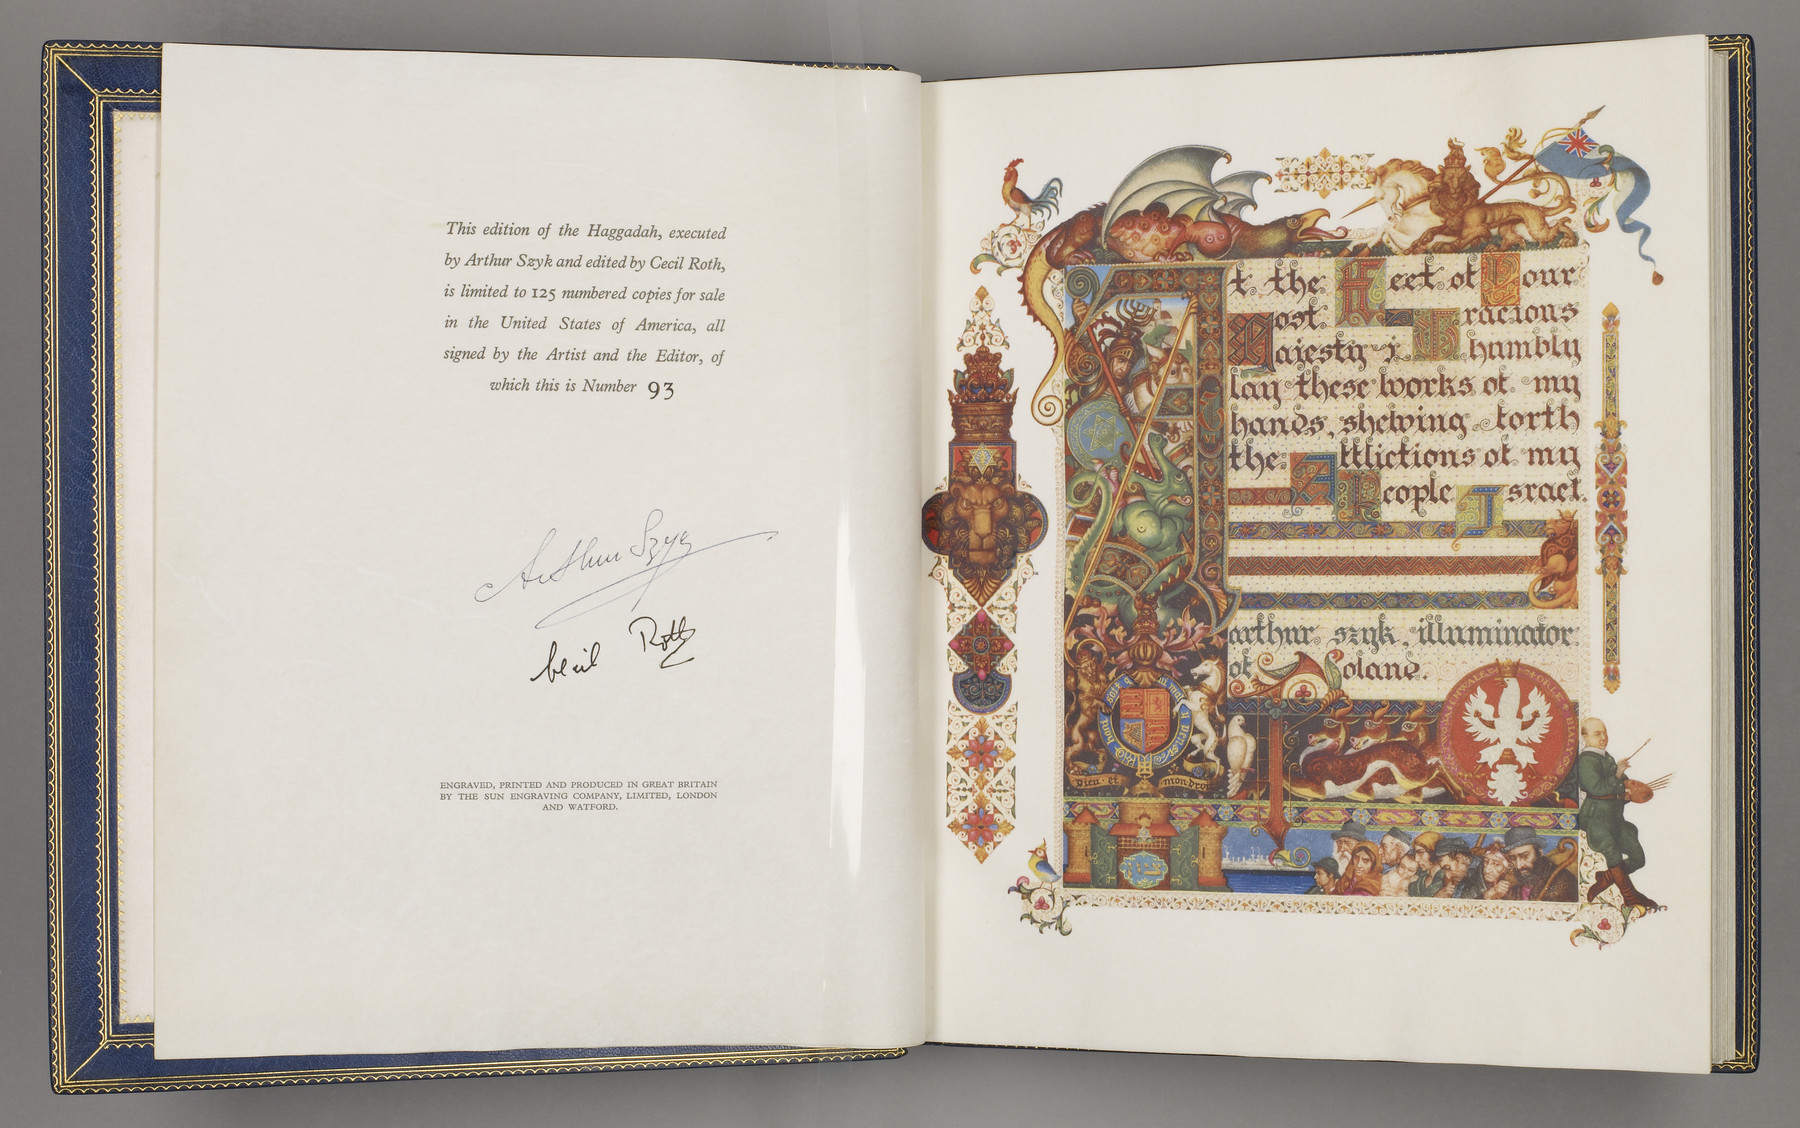 This edition of the Haggadah, executed
by Arthur Szyk and edited by Cecil Roth,
is limited to 125 numbered copies for sale
in the United States of America, all
signed by the Artist and the Editor, of
which this is Number 93
Arthur Szyk
Cecil Roth
ENGRAVED, PRINTED AND PRODUCED IN GREAT BRITAIN
BY THE SUN ENGRAVING COMPANY, LIMITED, LONDON
AND WATFORD.
At the Feet of Your
Most Gracious
Majesty I humbly
lay these works of my
hands, shewing forth
the Afflictions of my
People Israel.
arthur szyk, illuminator
of Poland.
Dieu et mon droit